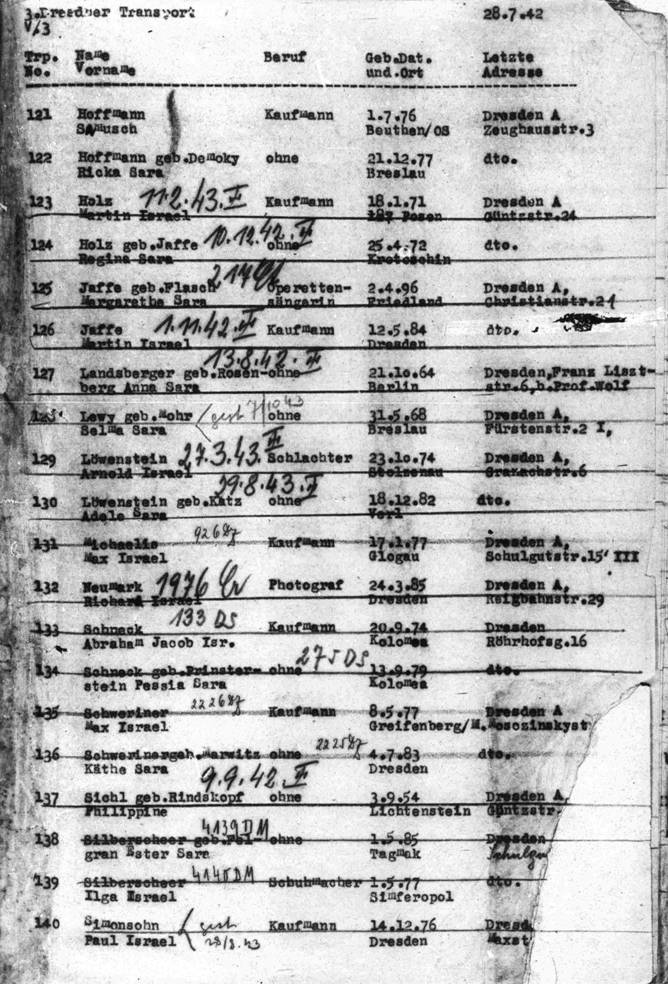 3.Dresdner Transport 28.7.42
V/3
Trp. Name Beruf Geb.Dat. Letzte
No. Vorname und.Ort Adresse
121 Hoffmann Kaufmann 1.7.76 Dresden A
Samusch Beuthen/OS Zeughausstr.3
122 Hoffmann geb.Demoky ohne 21.12.77 dto.
Ricka Sara Breslau
123 Holz 11.2.43. Kaufmann 18.1.71 Dresden A
Martin Israel Posen Güntzstr.24
124 Holz geb.Jaffe 10.12.42. ohne 25.4.72 dto.
Regina Sara Krotoschin
125 Jaffe geb.Flasch Operetten- 2.4.96 Dresden A,
Margarethe Sara sängerin Friedland Christianstr.21
126 Jaffe 1.11.42. Kaufmann 12.5.84 dto.
Martin Israel Dresden
127 Landsberger geb.Rosen- 13.8.42. ohne 21.10.64 Dresden,Franz Liszt-
berg Anna Sara Berlin str.6,b.Prof.Wolf
128 Lewy geb.Mohr gest 7/10 43 ohne 31.5.68 Dresden A,
Selma Sara Breslau Fürstenstr.2 I,
129 Löwenstein 27.3.43. Schlachter 23.10.74 Dresden A,
Arnold Israel Stolzenau Cranachstr.6
130 Löwenstein geb.Katz 29.8.43. ohne 18.12.82 dto.
Adele Sara Verl
131 Michaelis 926 Kaufmann 17.1.77 Dresden A,
Max Israel Glogau Schulgutstr.15 III
132 Neumark 1976 Er Photograf 24.3.85 Dresden A,
Richard Israel Dresden Reigbahnstr.29
133 Schneck 133 DS Kaufmann 20.9.74 Dresden
Abraham Jacob Isr. Kolomea Röhrhofsg.16
134 Schneck geb.Prinster- ohne 275 DS 13.9.79 dto.
stein Pessia Sara Kolomea
135 Schweriner 2226 Kaufmann 8.5.77 Dresden A
Max Israel Greifenberg/M. Mosozinskyst
136 Schwerinergeb.Marwitz ohne 2225 4.7.83 dto.
Käthe Sara Dresden
137 Sichl geb.Rindskopf 9.9.42. ohne 3.9.54 Dresden A,
Philippine Lichtenstein Güntzstr.
138 Silberscheer geb.Pol- 4139 DM ohne 1.5.85 Dresden
gran Ester Sara Tagmak Schulgu
139 Silberscheer 4140 DM Schuhmacher 1.5.77 dto.
Ilga Israel Simferopol
140 Simonsohn gest Kaufmann 14.12.76 Dresd
Paul Israel 28/8.43 Dresden Maxst